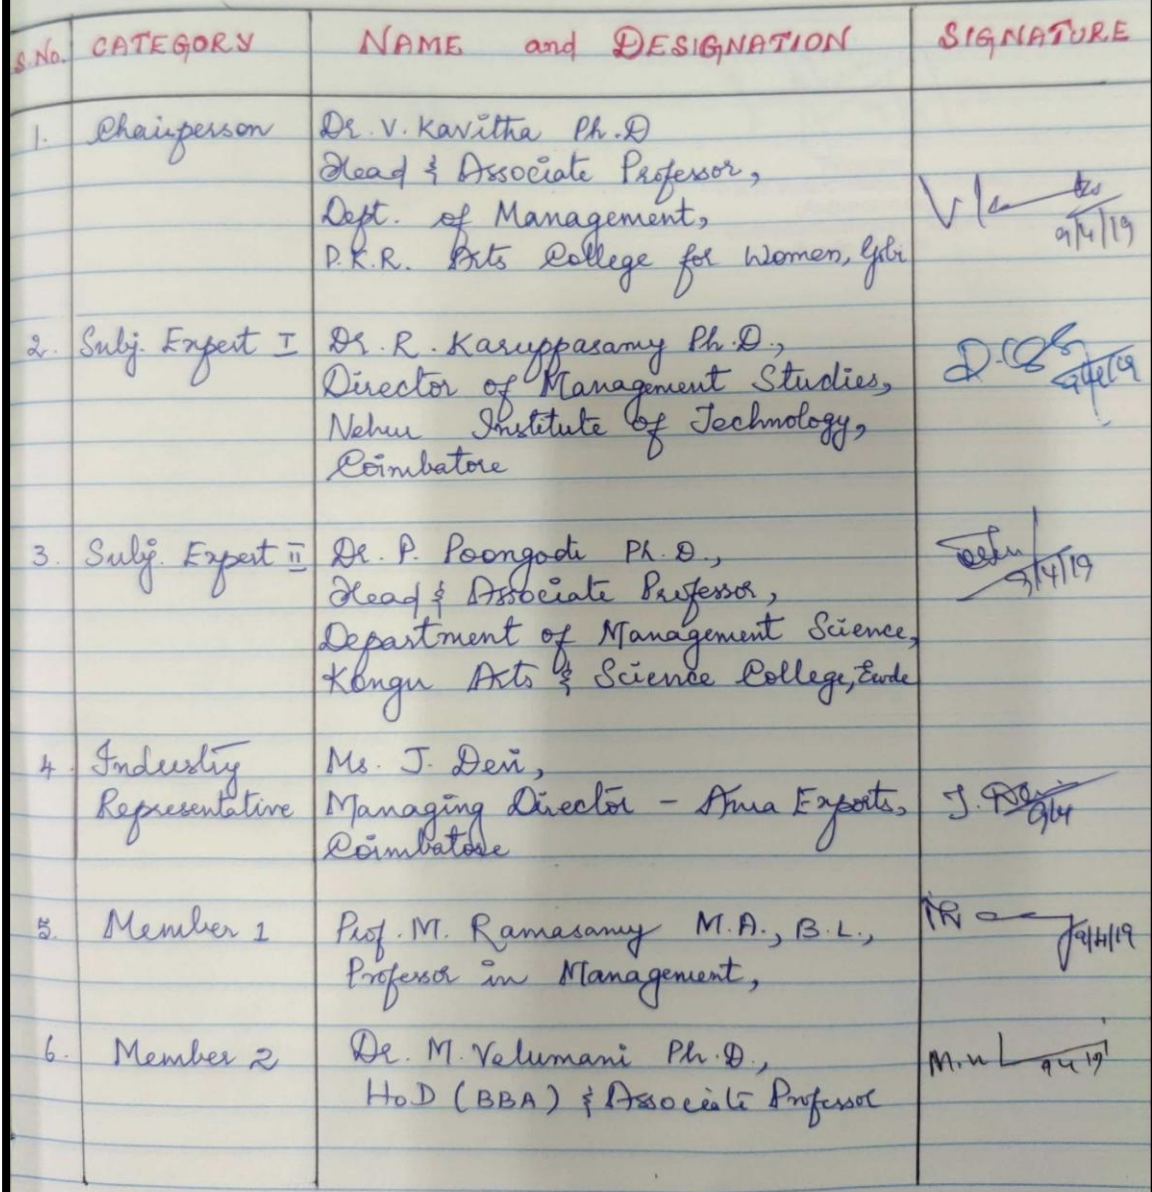 S.No. CATEGORY NAME and DESIGNATION SIGNATURE
1. Chairperson Dr. V. Kavitha Ph.D
Head & Associate Professor,
Dept. of Management,
P.K.R. Arts College for Women, Gobi
9/4/19
2. Subj. Expert I Dr. R. Karuppasamy Ph.D.,
Director of Management Studies,
Nehru Institute of Technology,
Coimbatore
9/4/19
3. Subj. Expert II Dr. P. Poongodi Ph.D.,
Head & Associate Professor,
Department of Management Science,
Kongu Arts & Science College, Erode
9/4/19
4. Industry Ms. J. Devi,
Representative Managing Director - Exports,
Coimbatore
J. Devi
9/4
5. Member 1 Prof. M. Ramasamy M.A., B.L.,
Professor in Management,
9/4/19
6. Member 2 Dr. M. Velumani Ph.D.,
HoD (BBA) & Associate Professor
9 4 19